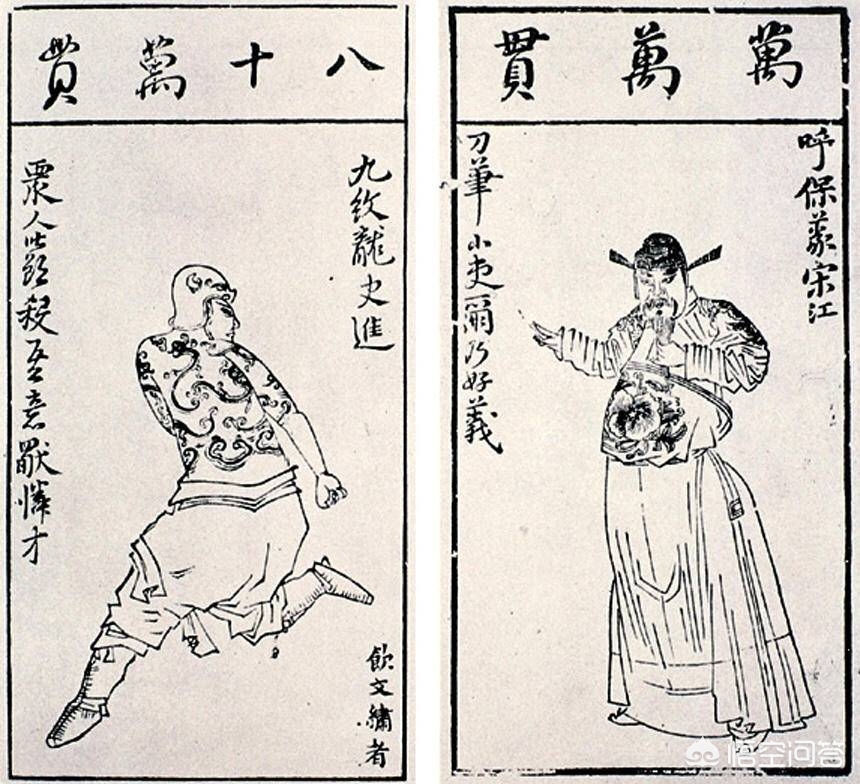 八十萬貫
九紋龍史進
衆人皆欲殺吾意獨憐才
飲文繡者
萬萬貫
呼保義宋江
刀筆小吏爾乃好義
悟空问答